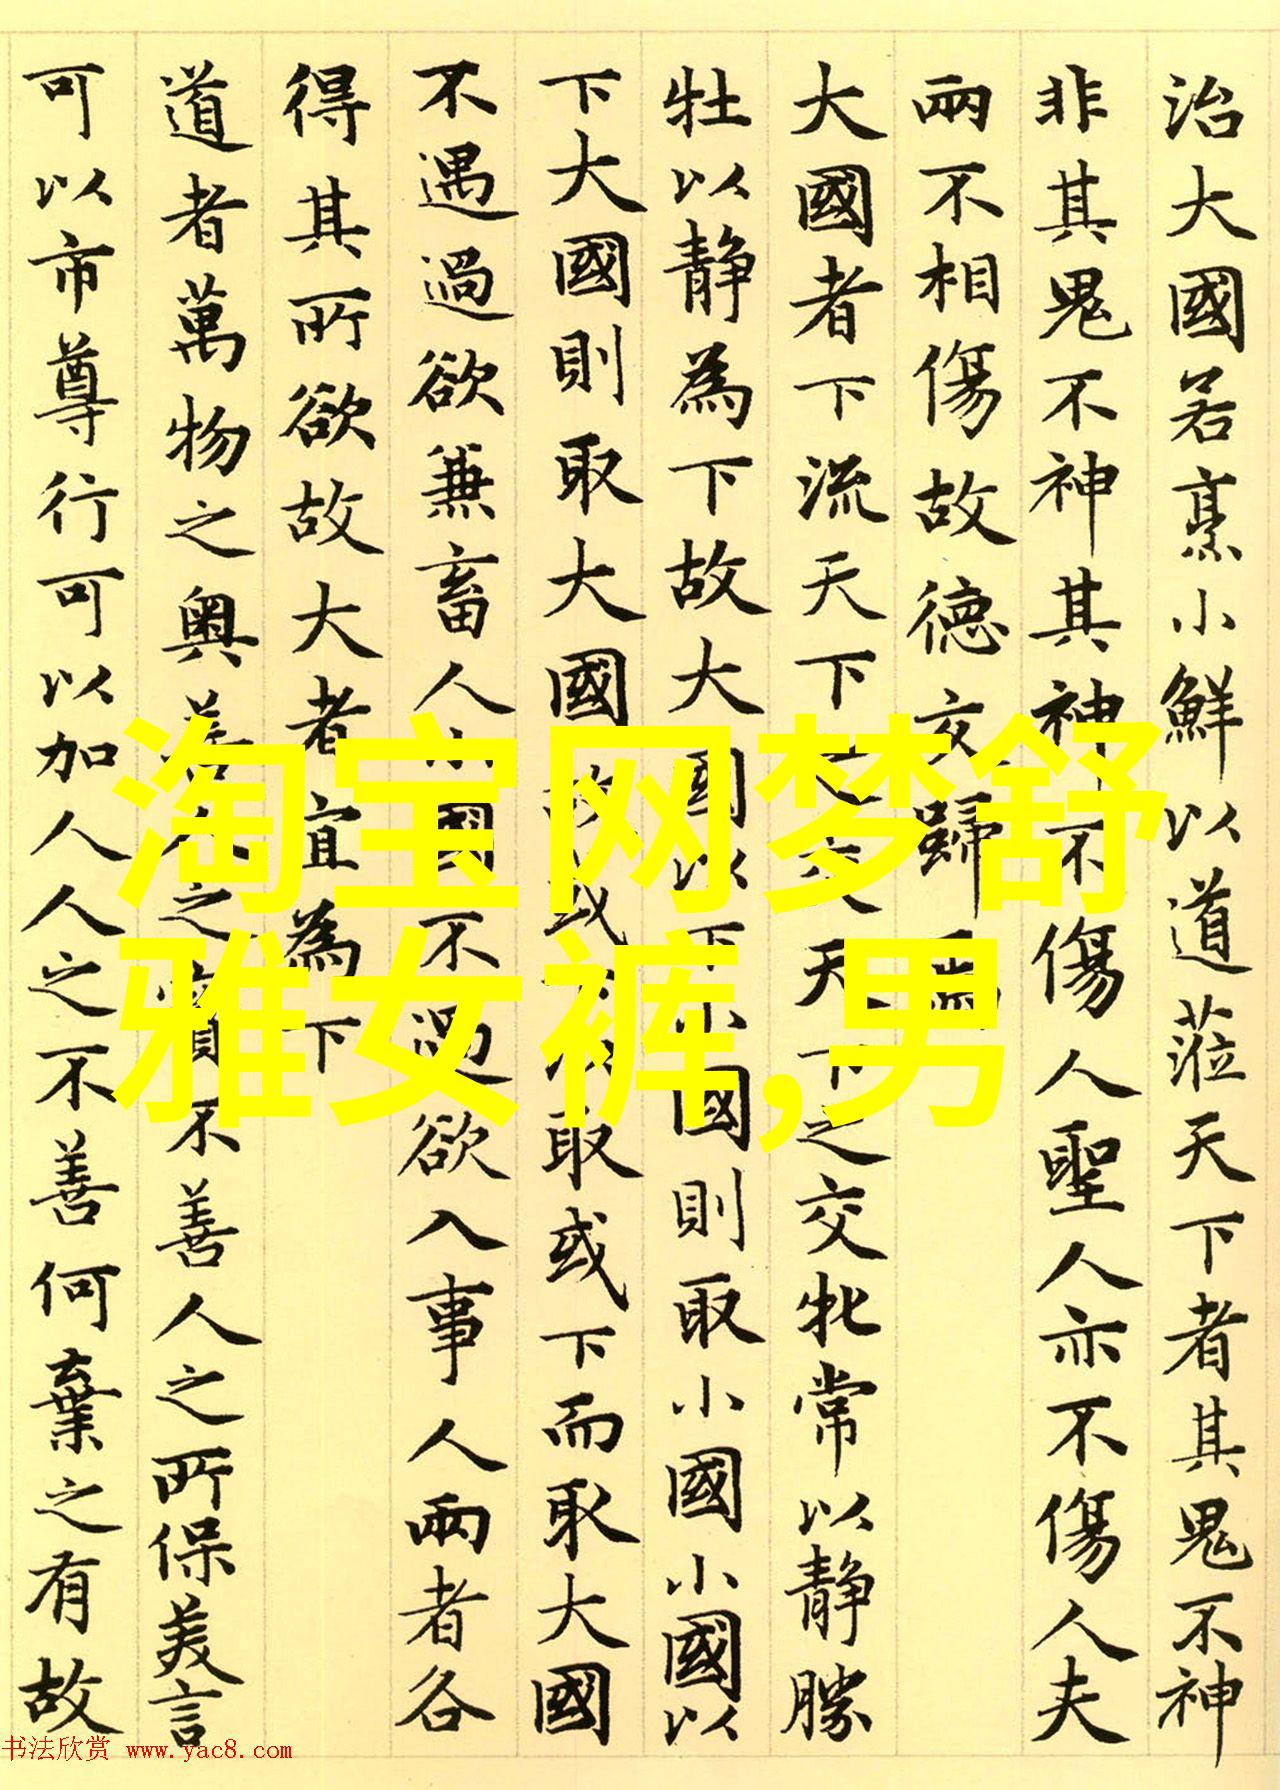 治大國若烹小鮮以道蒞天下者其鬼不神
非其鬼不神其神不傷人聖人亦不傷人夫
兩不相傷故德交歸焉
大國者下流天下之交天下之交牝常以静勝
牡以静為下故大國以下小國則取小國小國以
下大國則取大國故或下以取或下而取大國
不遇過欲兼畜人小國不過欲入事人兩者各
得其所欲故大者宜為下
道者萬物之奥善人之寶不善人之所保美言
可以市尊行可以加人人之不善何棄之有故
淘宝网梦舒
雅女裤,男
书法欣赏 www.yac8.com